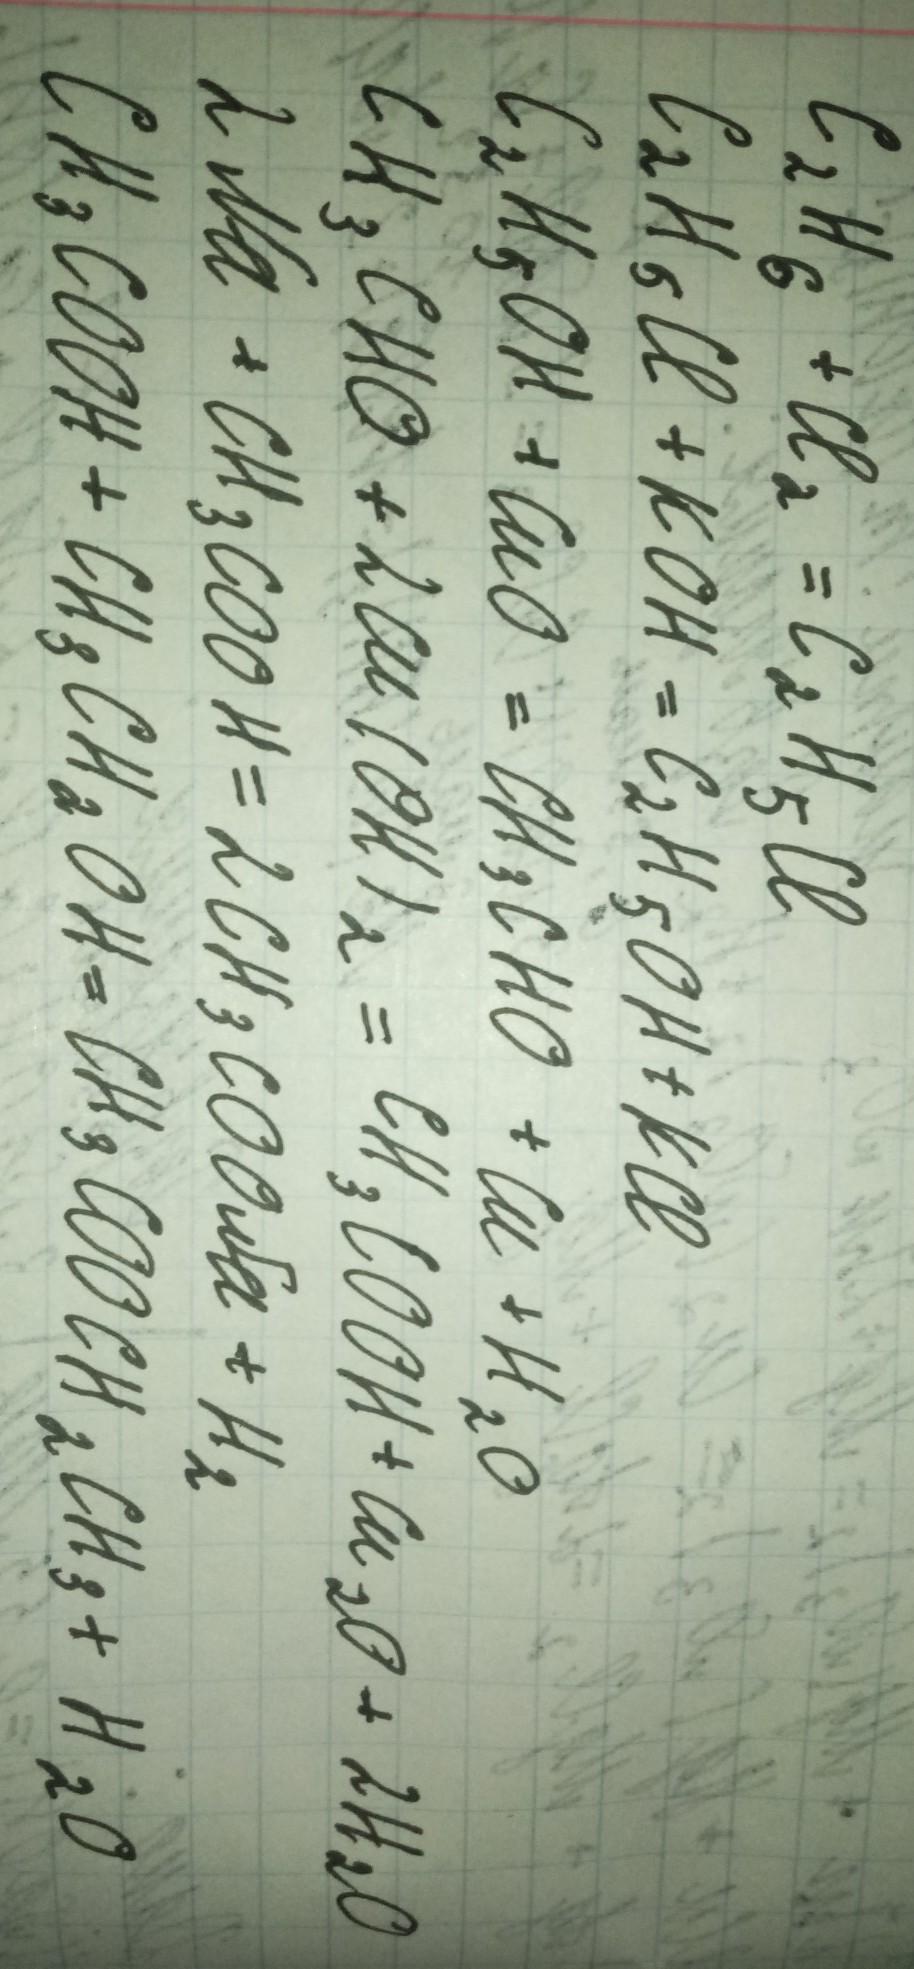 C₂H₆ + Cl₂ = C₂H₅Cl
C₂H₅Cl + KOH = C₂H₅OH + KCl
C₂H₅OH + CuO = CH₃CHO + Cu + H₂O
CH₃CHO + 2Cu(OH)₂ = CH₃COOH + Cu₂O + 2H₂O
2Na + CH₃COOH = 2CH₃COONa + H₂
CH₃COOH + CH₃CH₂OH = CH₃COOCH₂CH₃ + H₂O